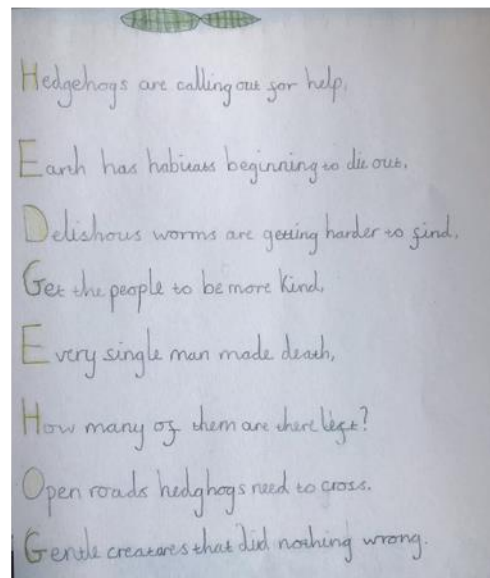 Hedgehogs are calling out for help,
Earth has habitats beginning to die out,
Delishous worms are getting harder to find,
Get the people to be more kind,
Every single man made death,
How many of them are there left?
Open roads hedghogs need to cross.
Gentle creatares that did nothing wrong.